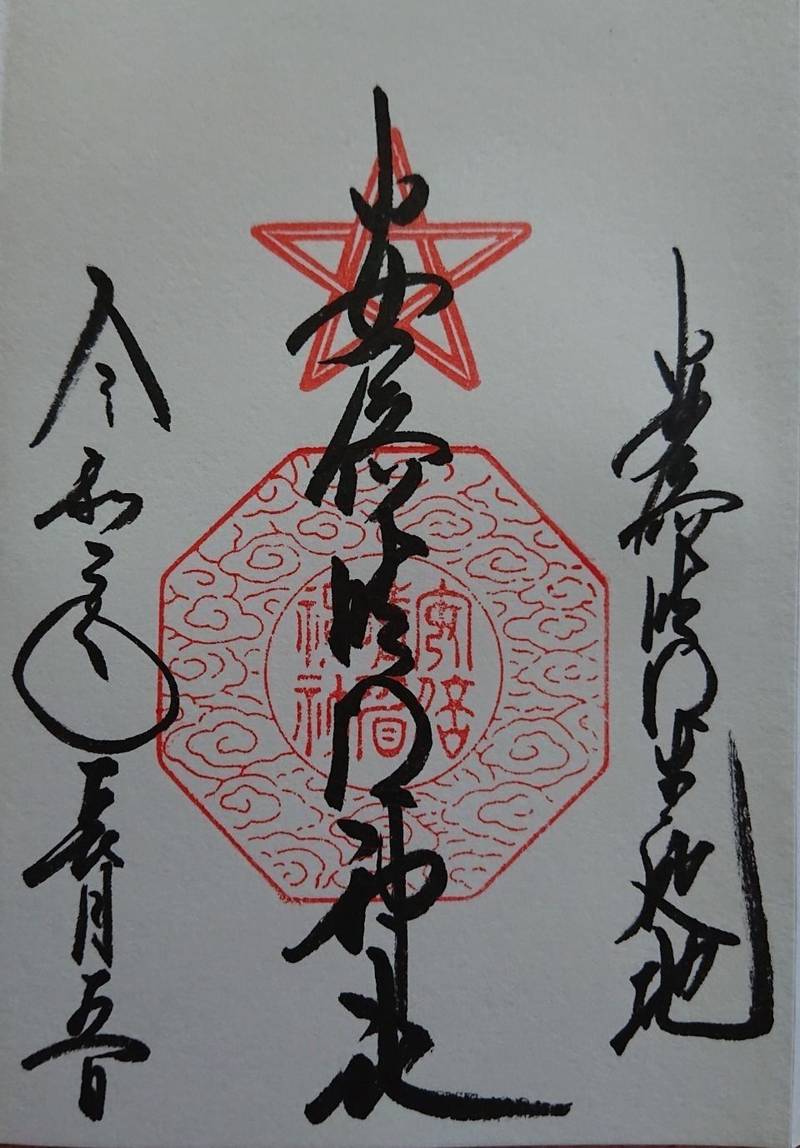 安倍晴明生誕地
安倍晴明神社
令和二年長月五日
安倍
晴明
神社